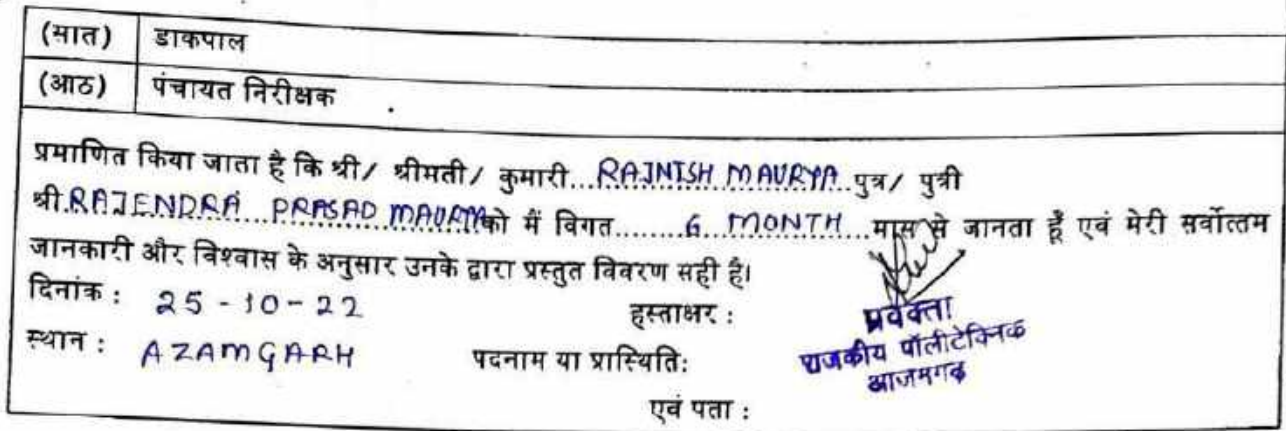 (सात) डाकपाल
(आठ) पंचायत निरीक्षक
प्रमाणित किया जाता है कि श्री/ श्रीमती/ कुमारी...RAJNISH MAURYA...पुत्र/ पुत्री
श्री.RAJENDRA PRASAD MAURYAको मैं विगत........6 MONTH...मास से जानता हूँ एवं मेरी सर्वोत्तम
जानकारी और विश्वास के अनुसार उनके द्वारा प्रस्तुत विवरण सही है।
दिनांक : 25-10-22 हस्ताक्षर :
प्रवक्ता
स्थान : AZAMGARH पदनाम या प्रास्थिति: राजकीय पॉलीटेक्निक
आजमगढ़
एवं पता :